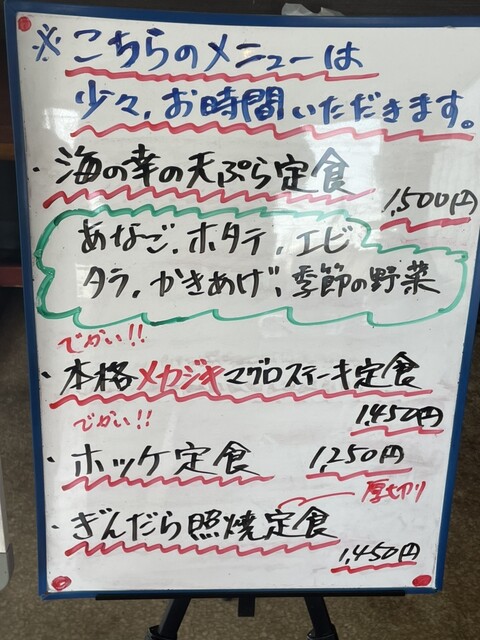 ※こちらのメニューは
少々、お時間いただきます。
・海の幸の天ぷら定食
1,500円
あなご、ホタテ、エビ
タラ、かきあげ、季節の野菜
でかい!!
・本格メカジキマグロステーキ定食
1,450円
でかい!!
・ホッケ定食 1,250円
厚切り
・ぎんだら照焼定食
1,450円